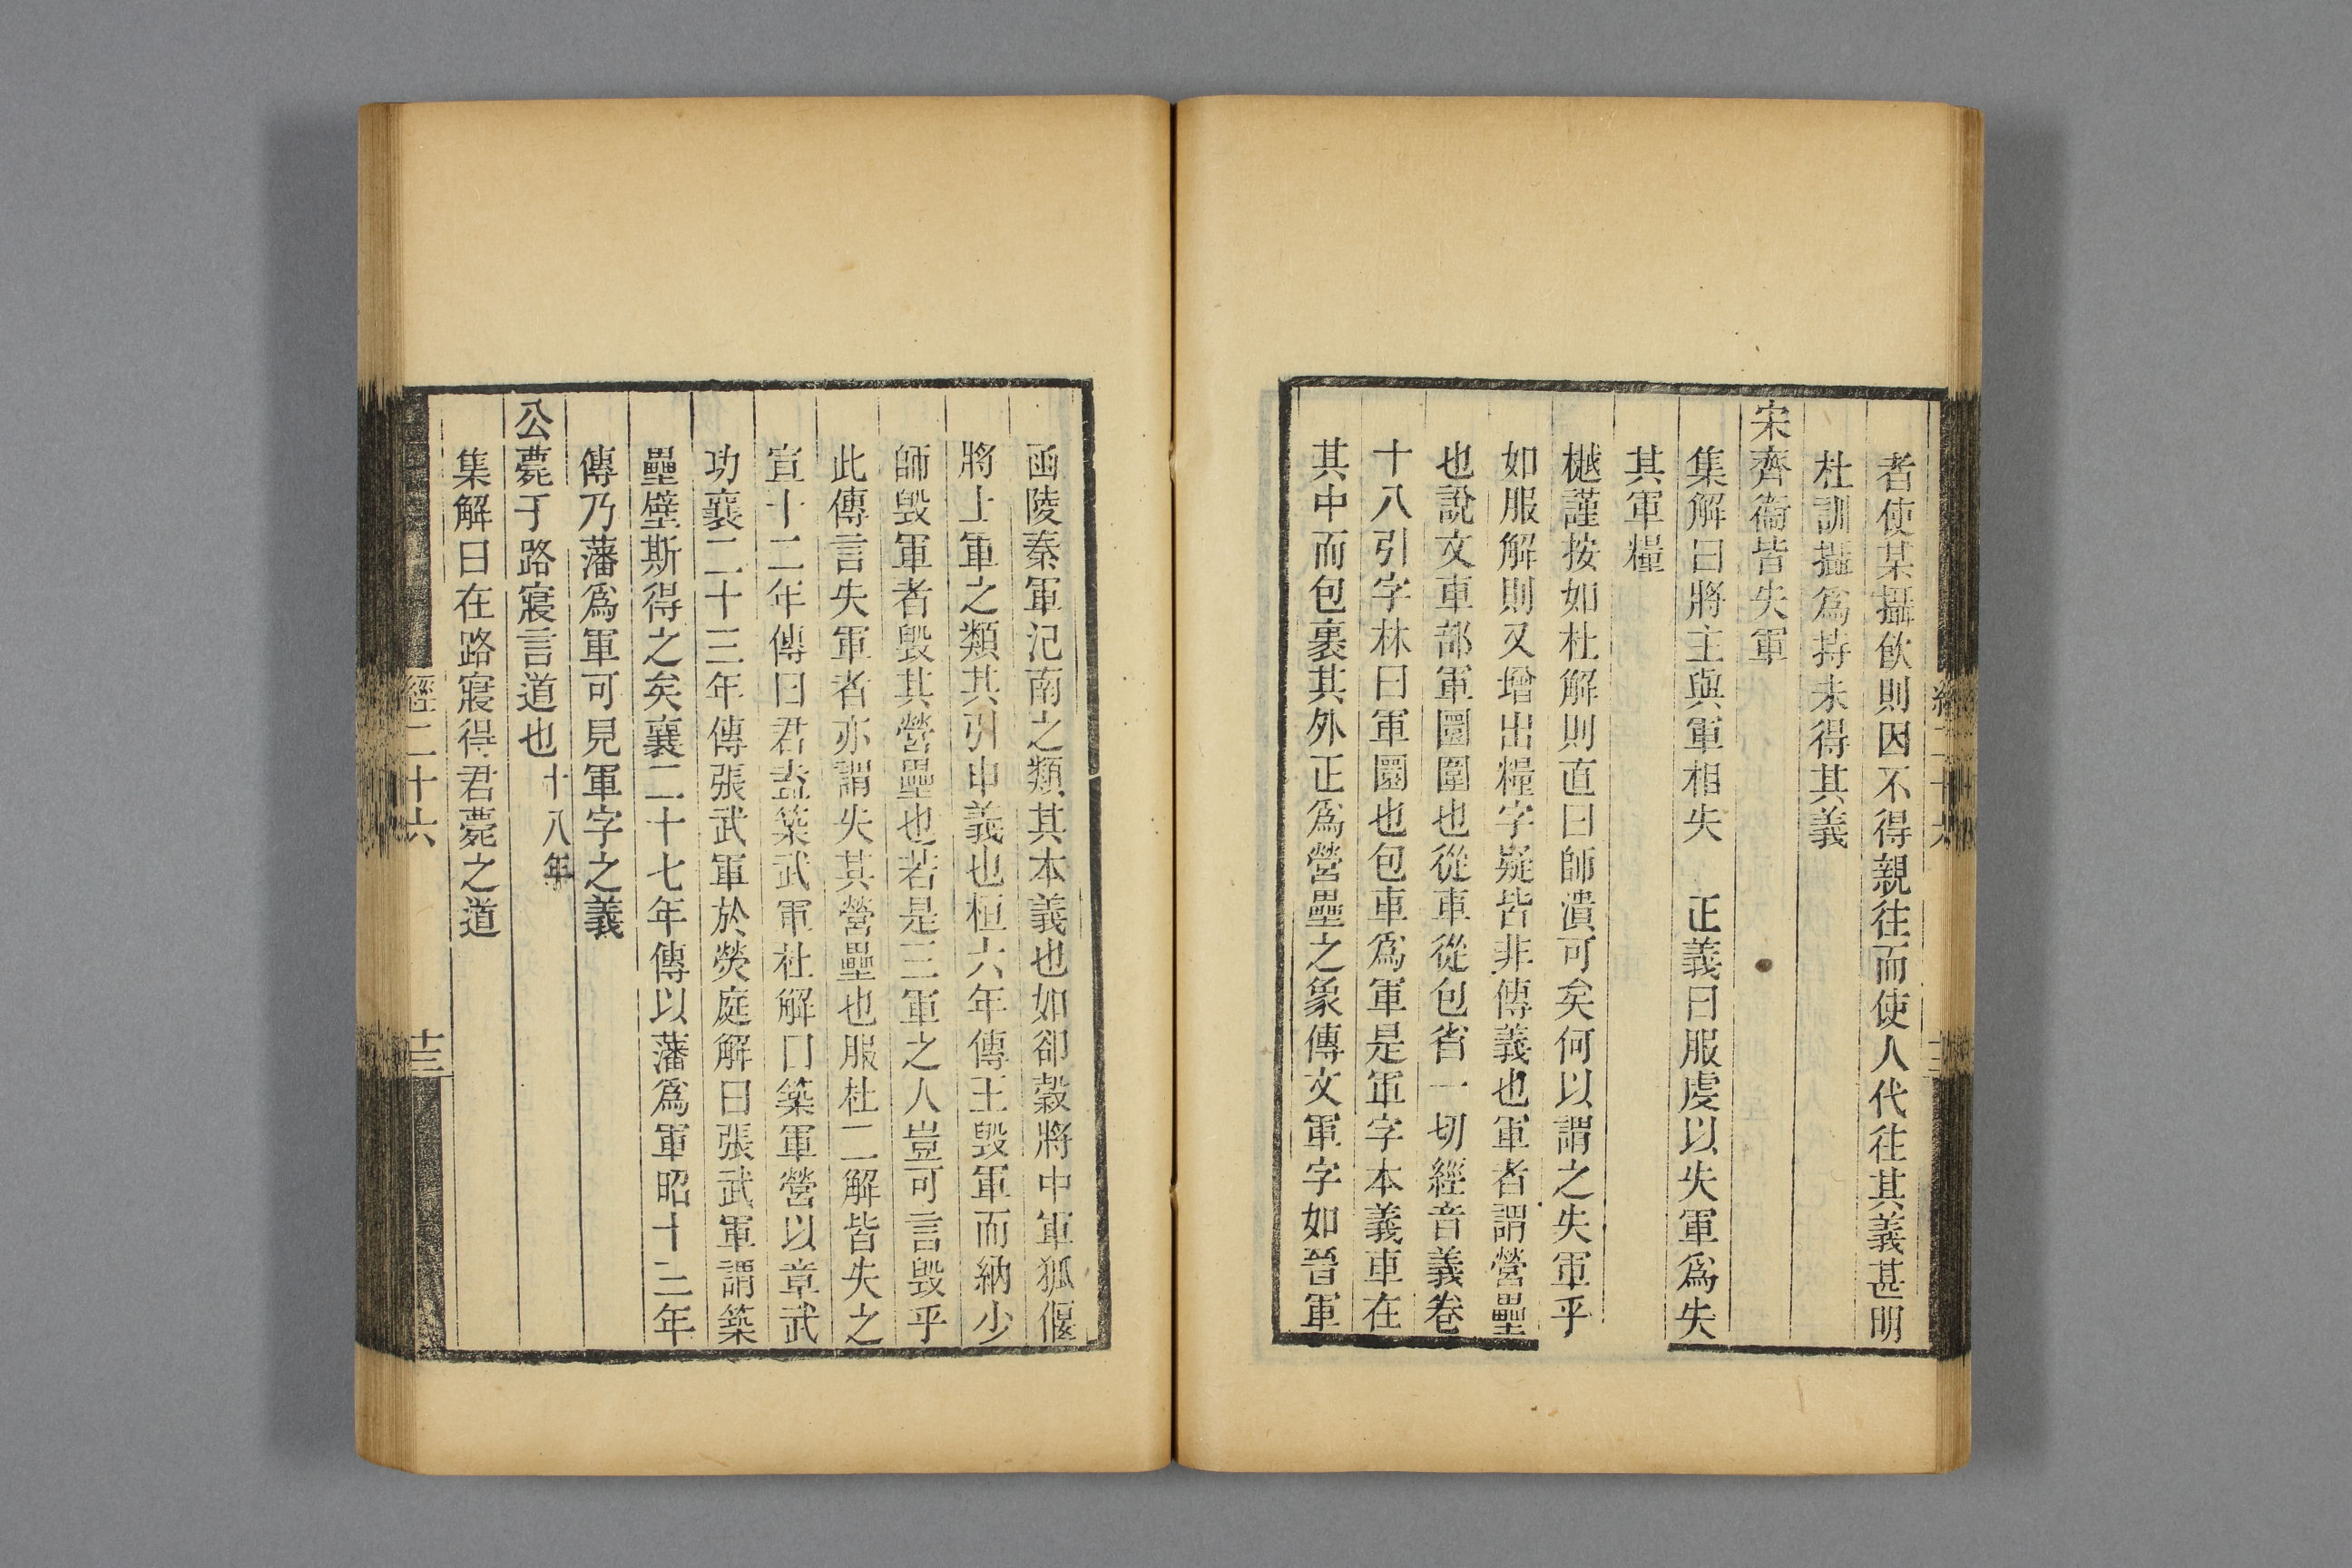 者使某攝飲則因不得親往而使人代往其義甚明
杜訓攝爲持未得其義
宋齊衞皆失軍
集解曰將主與軍相失　正義曰服虔以失軍爲失
其軍糧
樾謹按如杜解則直曰師潰可矣何以謂之失軍乎
如服解則又增出糧字疑皆非傳義也軍者謂營壘
也說文車部軍圜圍也從車從包省一切經音義卷
十八引字林曰軍圜也包車爲軍是軍字本義車在
其中而包裹其外正爲營壘之象傳文軍字如晉軍
函陵秦軍氾南之類其本義也如卻縠將中軍狐偃
將上軍之類其引申義也桓六年傳王毁軍而納少
師毁軍者毁其營壘也若是三軍之人豈可言毁乎
此傳言失軍者亦謂失其營壘也服杜二解皆失之
宣十二年傳曰君盍築武軍杜解曰築軍營以章武
功襄二十三年傳張武軍於熒庭解曰張武軍謂築
壘壁斯得之矣襄二十七年傳以藩爲軍昭十三年
傳乃藩爲軍可見軍字之義
公薨于路寢言道也十八年
集解曰在路寢得君薨之道
經二十六
十三